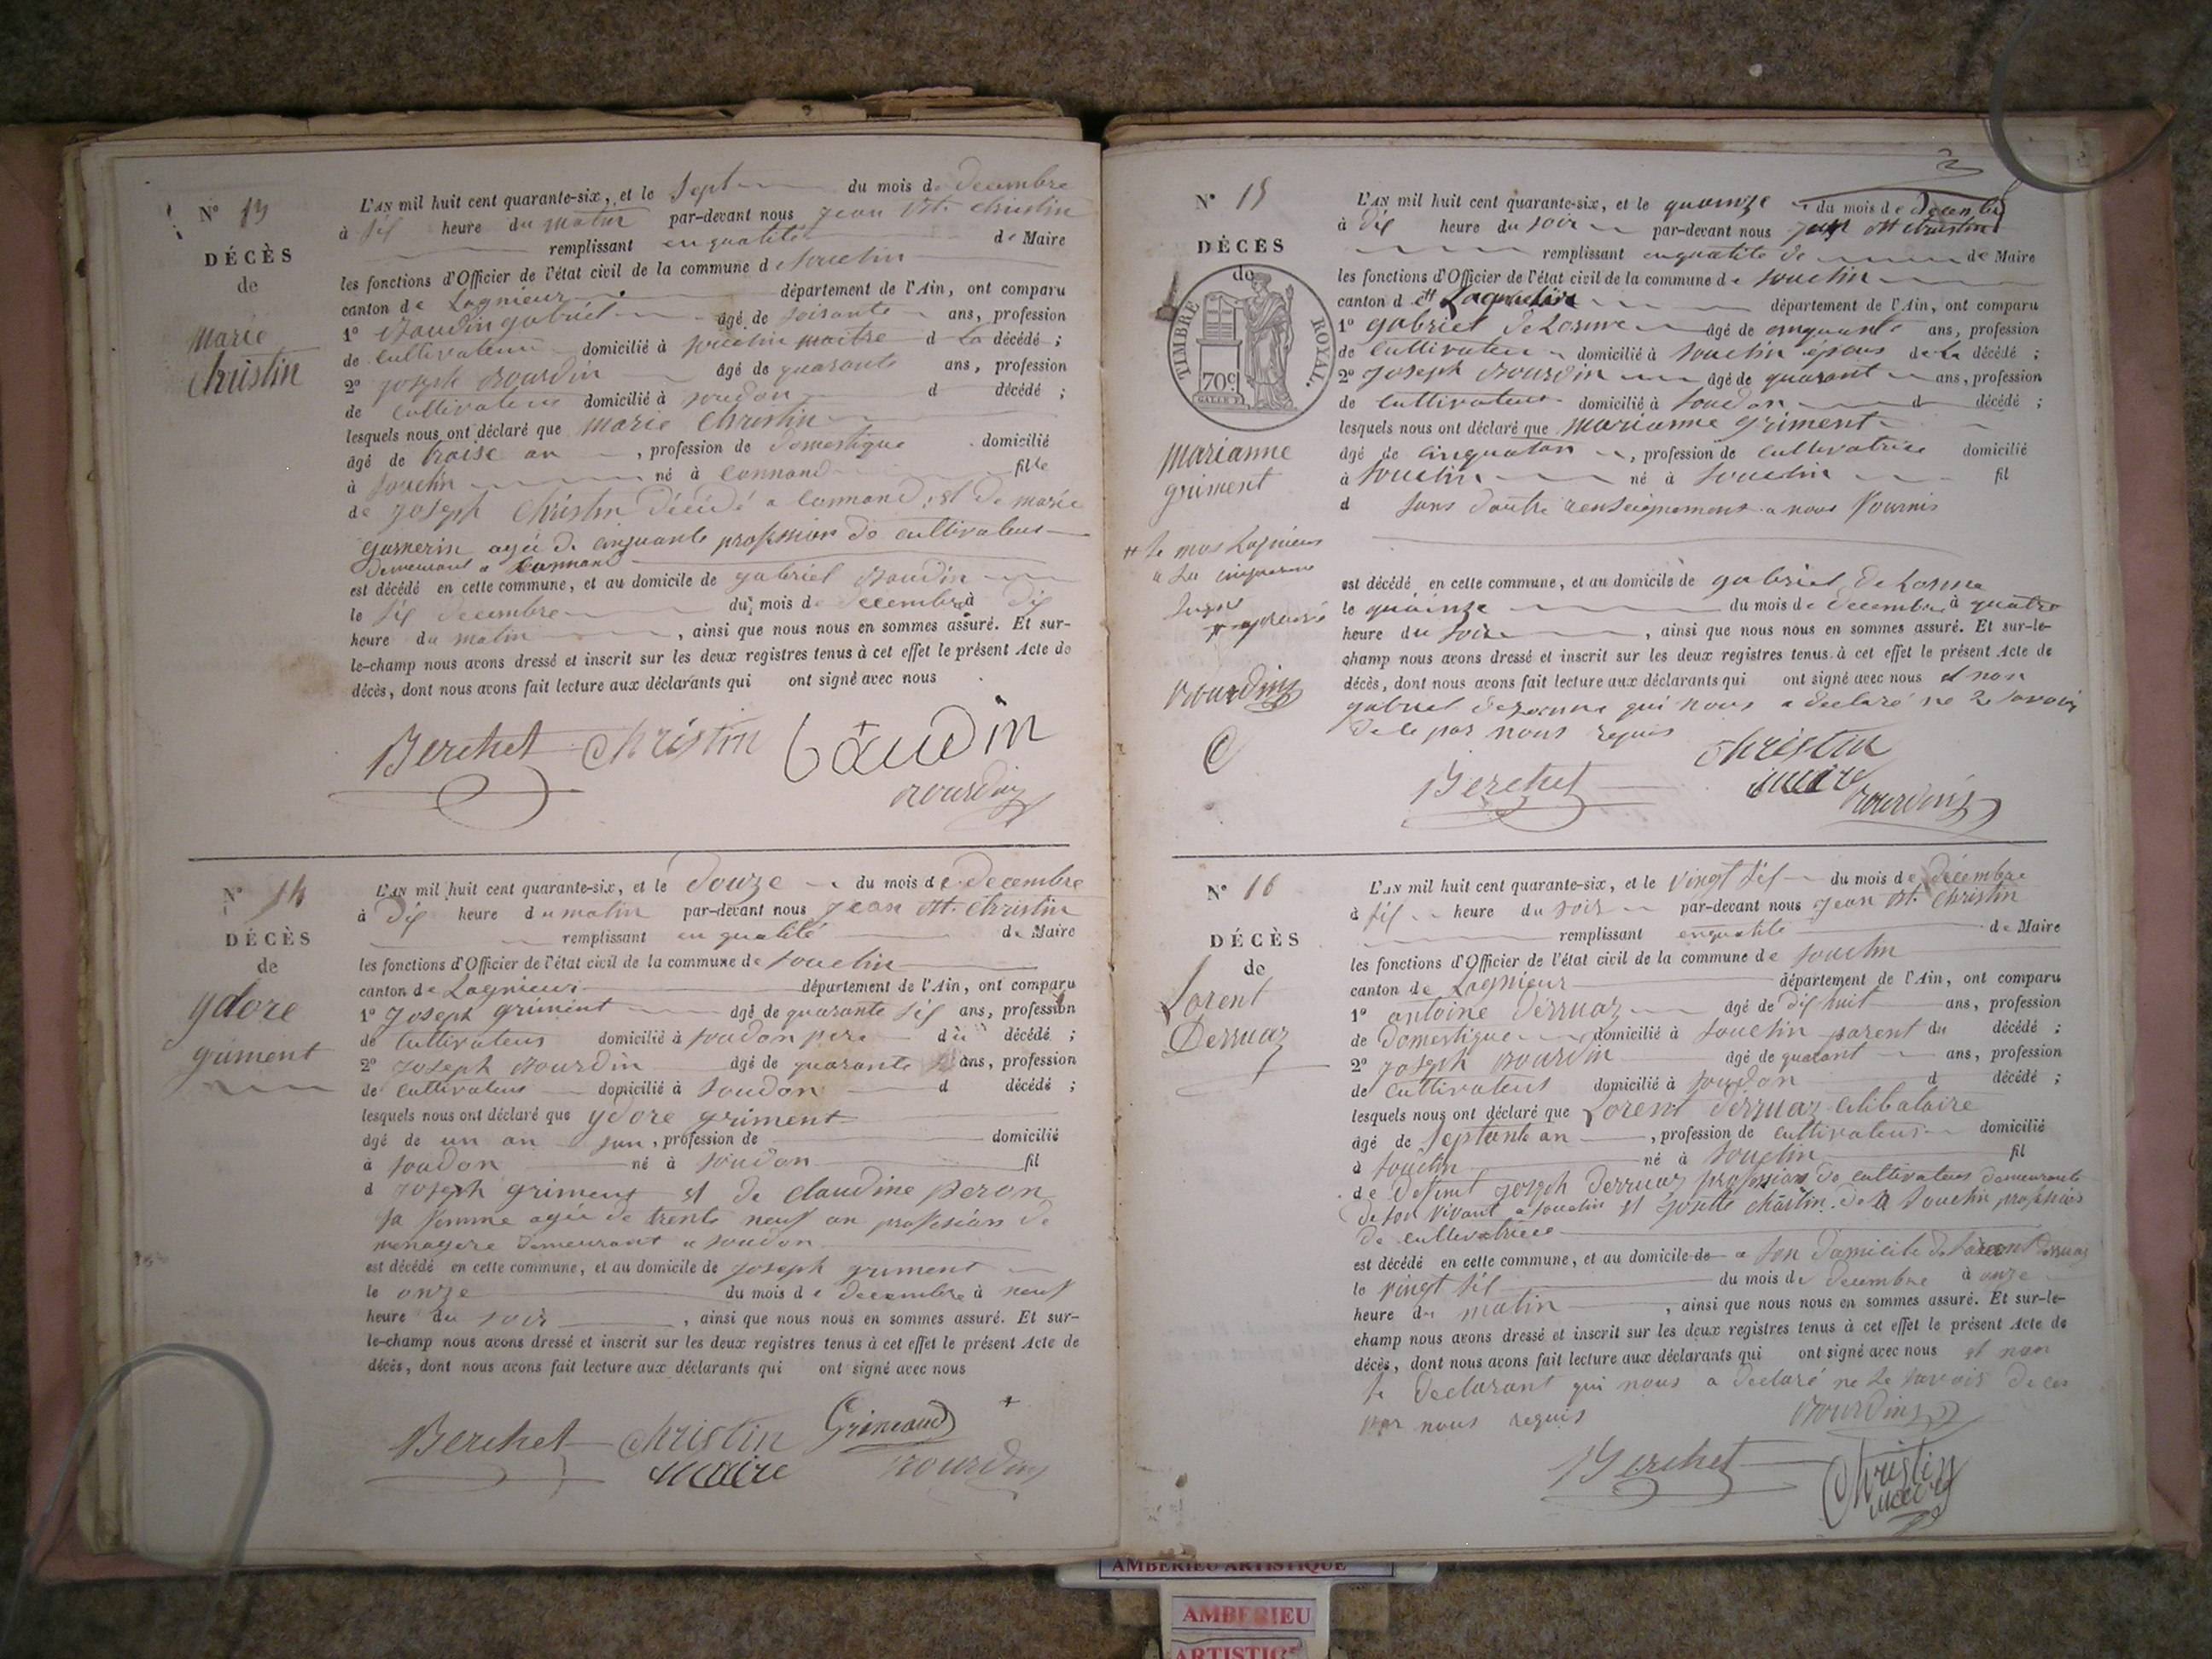 N° 13
DÉCÈS
de
Marie
Christin
L'AN mil huit cent quarante-six, et le Sept du mois de Decembre
à Sis heure du matin par-devant nous Jean Bt. Christin
remplissant en qualité de Maire
les fonctions d'Officier de l'état civil de la commune de Souclin
canton de Lagnieux département de l'Ain, ont comparu
1° Baudin gabriel âgé de soisante ans, profession
de Cultivateur domicilié à souclin maitre d La décédé ;
2° Joseph Bourdin âgé de quarante ans, profession
de Cultivateur domicilié à soudon d décédé ;
lesquels nous ont déclaré que Marie Christin
âgé de traise an , profession de Domestique domicilié
à Souclin né à Connand fille
de Joseph Christin Décédé a Connand, et De marie
garnerin agée de cinquante profession de cultivateur
Demeurant a Connand
est décédé en cette commune, et au domicile de gabriel Baudin
le sis decembre du mois de decembre à Dis
heure du matin , ainsi que nous nous en sommes assuré. Et sur-
le-champ nous avons dressé et inscrit sur les deux registres tenus à cet effet le présent Acte de
décès, dont nous avons fait lecture aux déclarants qui ont signé avec nous
Berchet Christin Baudin
Bourdin
N° 14
DÉCÈS
de
ydore
griment
L'AN mil huit cent quarante-six, et le Douze du mois de Decembre
à Dis heure du matin par-devant nous Jean Bt. Christin
remplissant en qualité de Maire
les fonctions d'Officier de l'état civil de la commune de Souclin
canton de Lagnieux département de l'Ain, ont comparu
1° Joseph griment âgé de quarante sis ans, profession
de Cultivateur domicilié à soudon pere du décédé ;
2° Joseph Bourdin âgé de quarante ans, profession
de Cultivateur domicilié à Soudon d décédé ;
lesquels nous ont déclaré que ydore griment
âgé de un an , profession de domicilié
à soudon né à soudon fil
d Joseph griment et de Claudine peron
sa femme agée de trente neuf an profession de
menagere demeurant a soudon
est décédé en cette commune, et au domicile de Joseph griment
le onze du mois de decembre à neuf
heure du soir , ainsi que nous nous en sommes assuré. Et sur-
le-champ nous avons dressé et inscrit sur les deux registres tenus à cet effet le présent Acte de
décès, dont nous avons fait lecture aux déclarants qui ont signé avec nous
Berchet Christin Grimand
Maire Bourdin
N° 15
DÉCÈS
de
TIMBRE ROYAL.
70c
marianne
griment
Bourdin
L'AN mil huit cent quarante-six, et le quainze du mois de Decembre
à Dis heure du soir par-devant nous Jean Bt Christin
remplissant en qualité de de Maire
les fonctions d'Officier de l'état civil de la commune de souclin
canton d département de l'Ain, ont comparu
1° gabriel deLorme âgé de cinquante ans, profession
de Cultivateur domicilié à souclin épous de La décédé ;
2° Joseph Bourdin âgé de quarant ans, profession
de Cultivateur domicilié à soudon d décédé ;
lesquels nous ont déclaré que marianne griment
âgé de cinquatan , profession de Cultivatrice domicilié
à souclin né à souclin fil
d sans dautre renseignement a nous fournis
est décédé en cette commune, et au domicile de gabriel de Lorme
le quainze du mois de decembre à quatre
heure du soir , ainsi que nous nous en sommes assuré. Et sur-le-
champ nous avons dressé et inscrit sur les deux registres tenus à cet effet le présent Acte de
décès, dont nous avons fait lecture aux déclarants qui ont signé avec nous et non
gabriel qui nous a declaré ne Le savoir
de le par nous requis
Christin
Berchet Maire
Bourdin
N° 16
DÉCÈS
de
Lorent
Derruaz
L'AN mil huit cent quarante-six, et le vingt sis du mois de décembre
à sis heure du soir par-devant nous Jean Bt. Christin
remplissant en qualite de Maire
les fonctions d'Officier de l'état civil de la commune de souclin
canton de Lagnieux département de l'Ain, ont comparu
1° antoine Derruaz âgé de dis huit ans, profession
de Domestique domicilié à souclin parent du décédé ;
2° Joseph Bourdin âgé de quarant ans, profession
de Cultivateur domicilié à soudon d décédé ;
lesquels nous ont déclaré que Lorent Derruaz Celibataire
âgé de septante an , profession de Cultivateur domicilié
à souclin né à souclin fil
de Defunt Joseph Derruaz profession de cultivateur demeurant
de son vivant a souclin et Josette Christin de a souclin profession
de cultivatrice
est décédé en cette commune, et au domicile de a son Domicile de Lorent Derruaz
le vingt sis du mois de decembre à onze
heure du matin , ainsi que nous nous en sommes assuré. Et sur-le-
champ nous avons dressé et inscrit sur les deux registres tenus à cet effet le présent Acte de
décès, dont nous avons fait lecture aux déclarants qui ont signé avec nous et non
le Declarant qui nous a declaré ne Le savoir de ce
par nous requis Bourdin
Berchet Christin
Maire
AMBERIEU ARTISTIQUE
AMBERIEU
ARTISTIQ